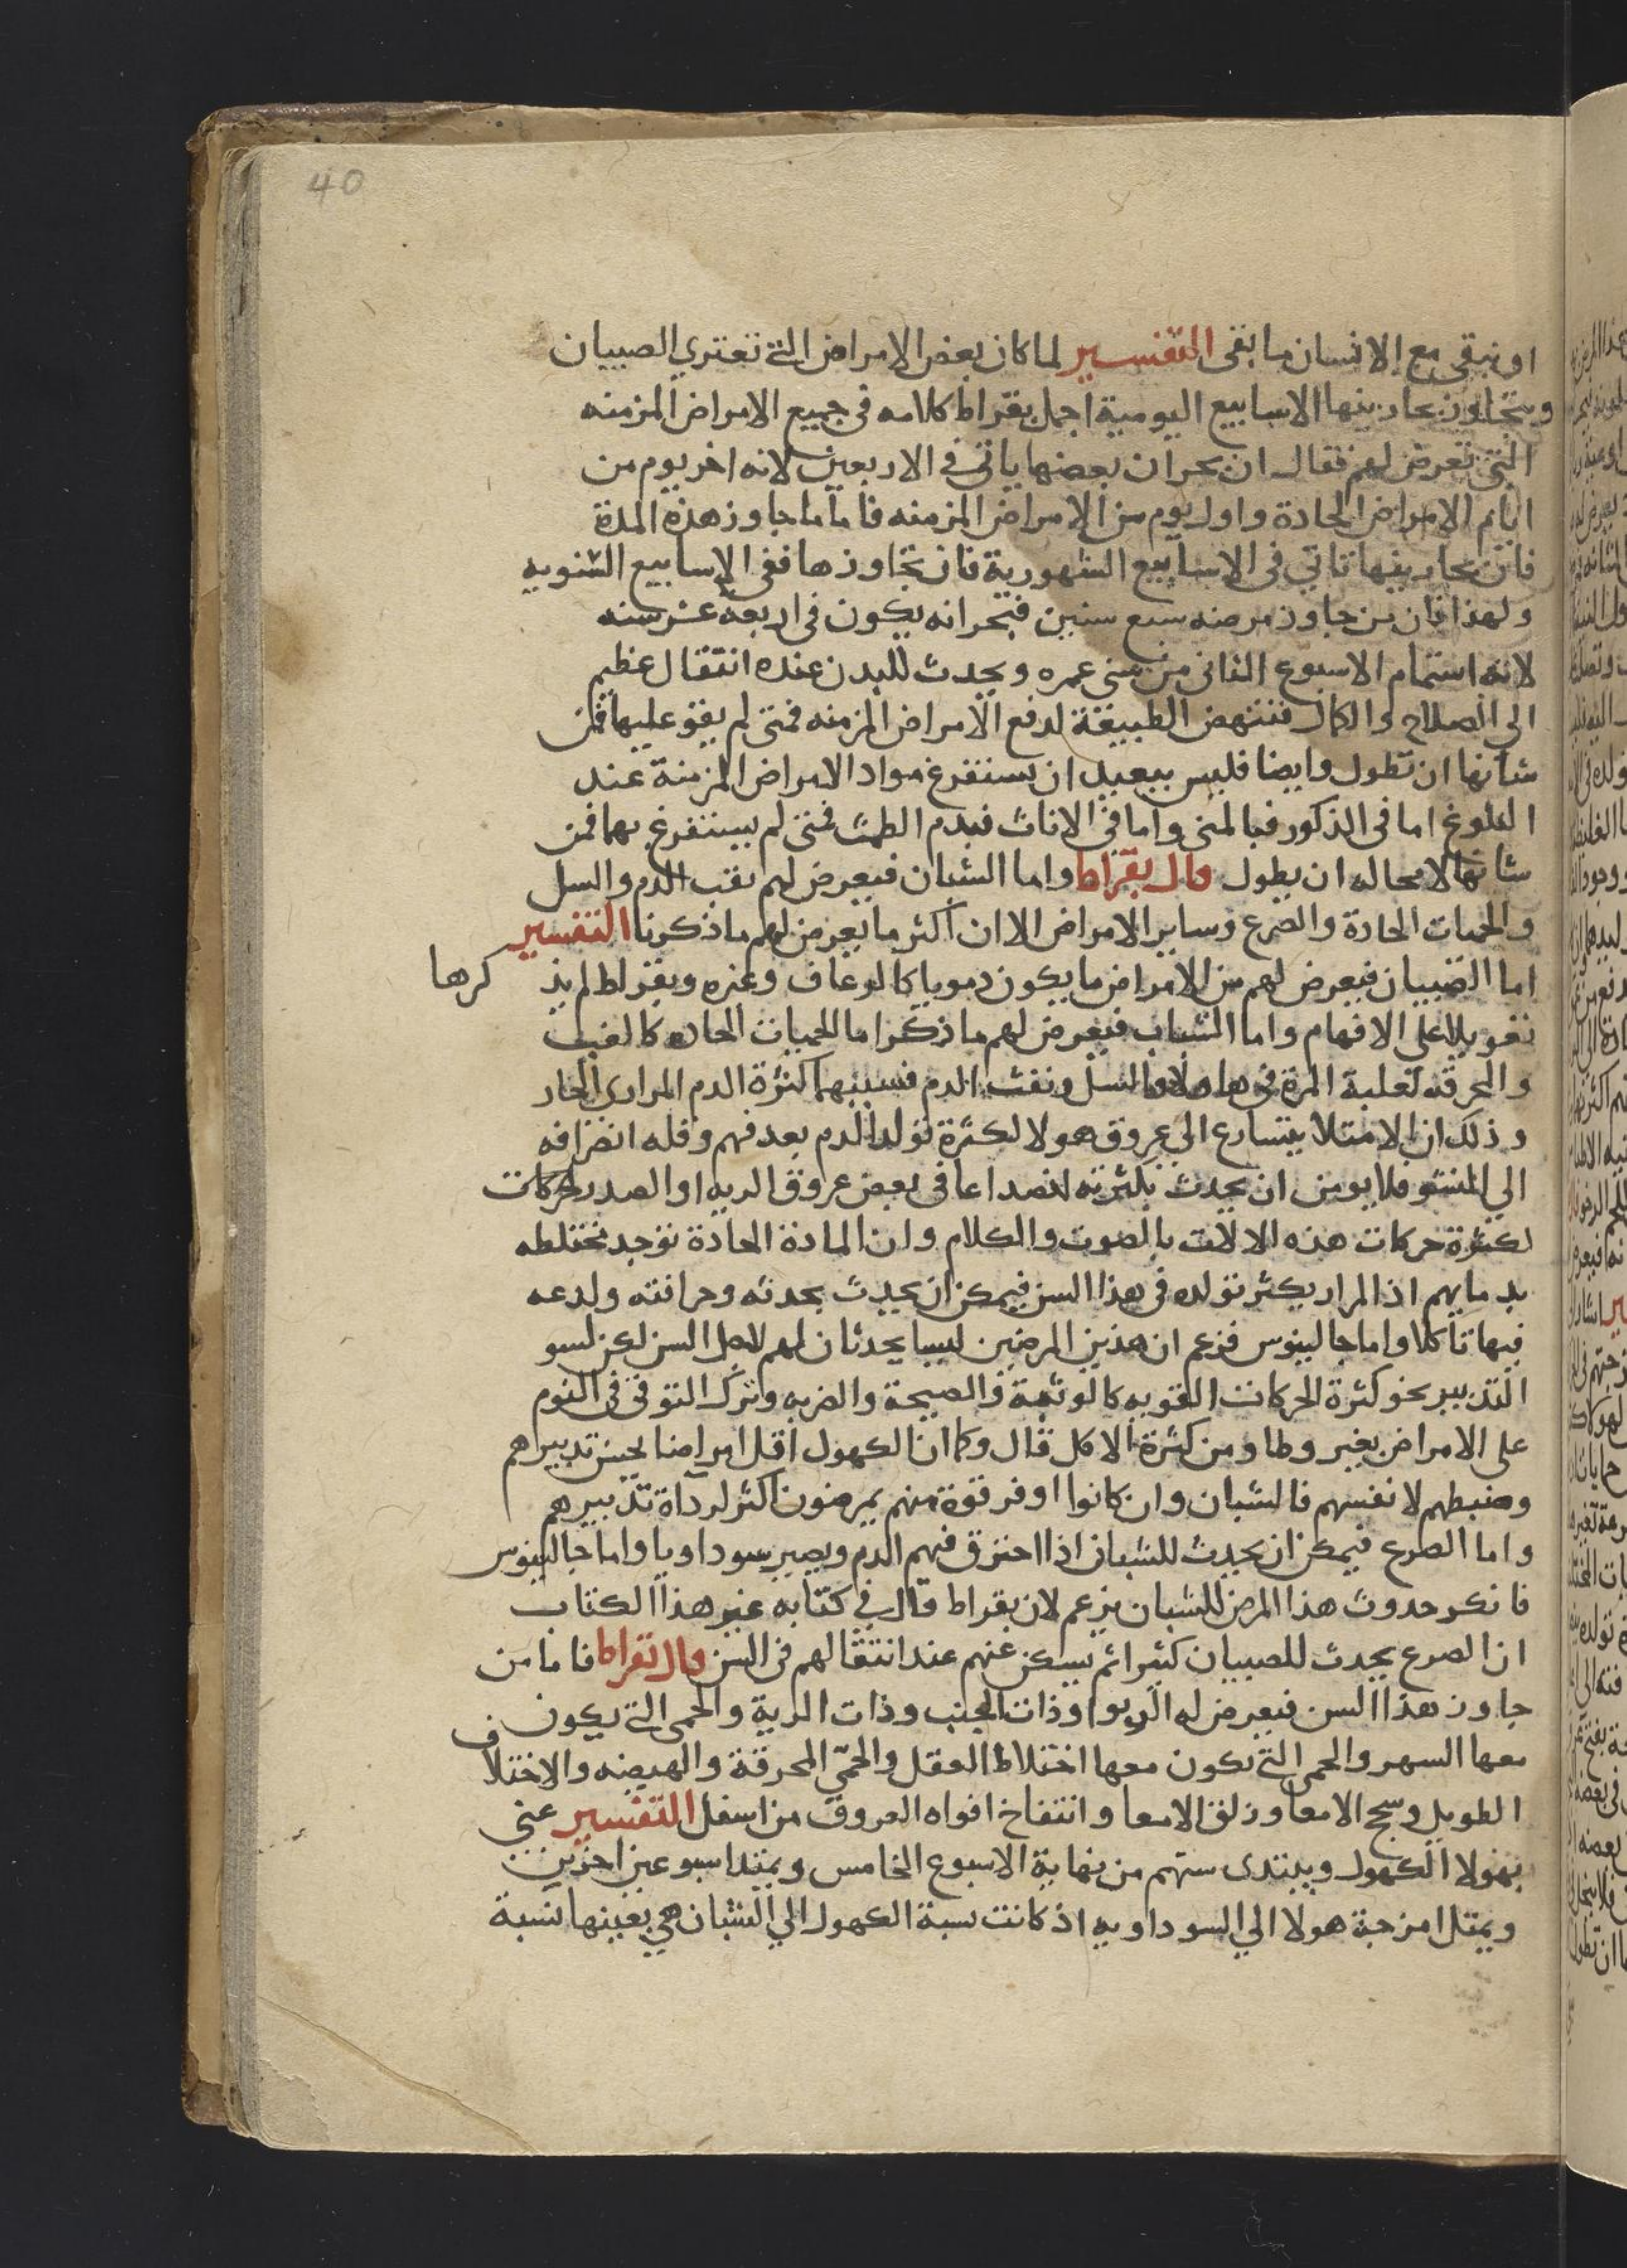 40
او نبقى مع الانسان ما بقى التفسير لما كان بعض الامراض التي تعتري الصبيان
ويتجاوز بحارينها الاسابيع اليومية اجمل بقراط كلامه في جميع الامراض المزمنه
التي تعرض لهم فقال ان بحران بعضها ياتي في الاربعين لانه اخر يوم من
ايام الامراض الحادة واول يوم من الامراض المزمنه فاما ما جاوز هذه المدة
فان بحارينها تاتي في الاسابيع الشهورية فان تجاوزها ففي الاسابيع السنويه
ولهذا فان من جاوز مرضه سبع سنين فبحرانه يكون في اربعة عشر سنه
لانه استتمام الاسبوع الثاني من سني عمره ويحدث للبدن عنده انتقال عظيم
الي الصلاح والكمال فتنهض الطبيعة لدفع الامراض المزمنه فمتى لم يقو عليها فمن
شانها ان تطول وايضا فليس ببعيد ان يستفرغ مواد الامراض المزمنة عند
البلوغ اما في الذكور فبالمني واما في الاناث فبدم الطمث فمتى لم يستفرغ بهما فمن
شانها لا محاله ان يطول قال بقراط واما الشبان فيعرض لهم نفث الدم والسل
والحميات الحادة والصرع وساير الامراض الا ان اكثر ما يعرض لهم ما ذكرنا التفسير
اما الصبيان فيعرض لهم من الامراض ما يكون دمويا كالرعاف وغيره وبقراط لم يذ كرها
تعويلا على الافهام واما الشباب فيعرض لهم ما ذكر اما الحميات الحاده كالغب
والمحرقه لغلبة المرة في هاولا واما السل ونفث الدم فسببهما كثرة الدم المراري الحار
وذلك ان الامتلا يتسارع الي عروق هولا لكثرة تولد الدم بعد فهم وقله انصرافه
الي النشو فلا يومن ان يحدث بكثرته انصداعا في بعض عروق الريه او الصدر لحركات
لكثرة حركات هذه الالات بالصوت والكلام وان المادة الحادة توجد مختلطه
بدمايهم اذ المرار يكثر تولده في هذا السن فيمكن ان يحدث بحدته وحرافته ولدعه
فيها تاكلا واما جالينوس فزعم ان هذين المرضين ليسا يحدثان لهم لاجل السن لكن لسو
التدبير نحو كثرة الحركات القويه كالوثبة والصيحة والضربه وترك التوقي في النوم
على الامراض بغير وطا ومن كثرة الاكل قال وكما ان الكهول اقل امراضا لحسن تدبيرهم
وضبطهم لانفسهم فالشبان وان كانوا اوفر قوة منهم يمرضون اكثر لرداة تدبيرهم
واما الصرع فيمكن ان يحدث للشبان اذا احترق فيهم الدم ويصير سوداويا واما جالينوس
فانكر حدوث هذا المرض للشبان بزعم لان بقراط قال في كتابه غير هذا الكتاب
ان الصرع يحدث للصبيان كثيرا ثم يسكن عنهم عند انتقالهم في السن قال بقراط فاما من
جاوز هذا السن فيعرض له الربو وذات الجنب وذات الرية والحمى التي يكون
معها السهر والحمى التي تكون معها اختلاط العقل والحمّي المحرقة والهيضه والاختلاف
الطويل وسحج الامعا وزلق الامعا وانتفاخ افواه العروق من اسفل التفسير عني
بهولا الكهول ويبتدى سنهم من نهاية الاسبوع الخامس ويمتد اسبوعين اخرين
ويمتل امزجة هولا الي السوداويه اذ كانت نسبة الكهول الي الشبان هي بعينها نسبة